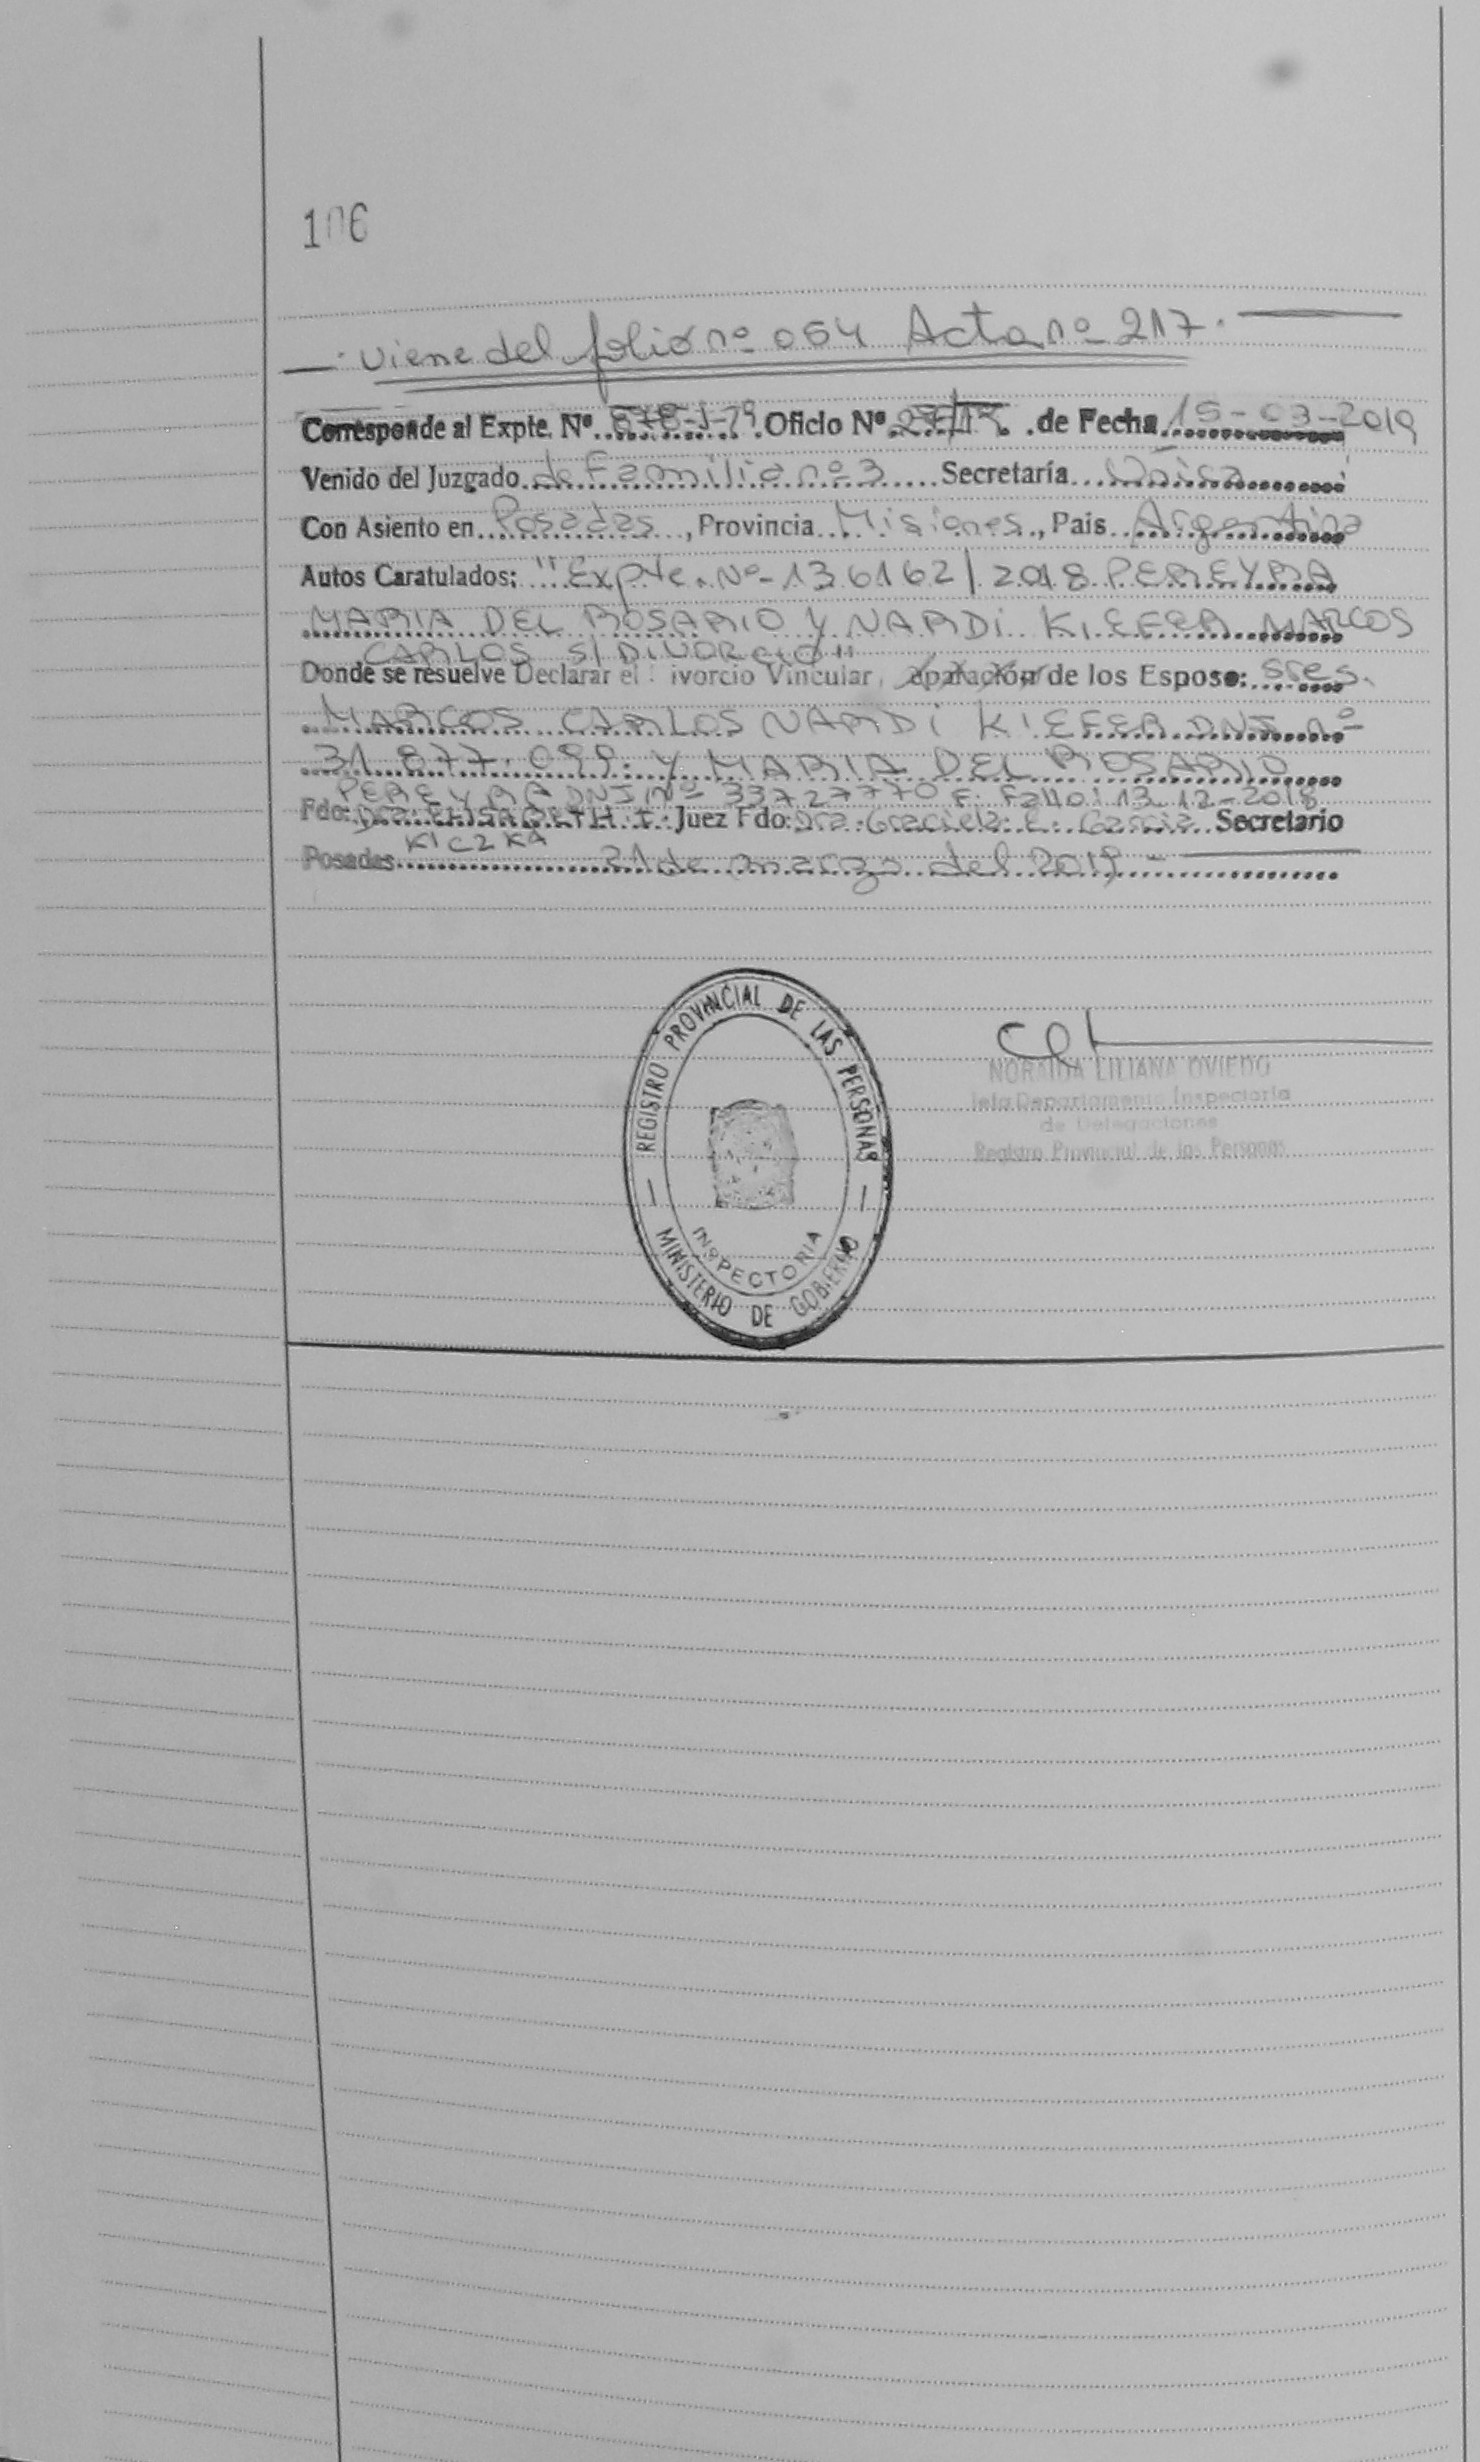 106
viene del folio nº 054 Acta nº 217.
Corresponde al Expte. Nº 678-J-19 Oficio Nº de Fecha 15-03-2019
Venido del Juzgado de Familia nº 3 Secretaría Única
Con Asiento en Posadas, Provincia Misiones, País Argentina
Autos Caratulados: "Expte. Nº 136162/2018 PEREYRA
MARIA DEL ROSARIO Y NARDI KIEFER MARCOS
CARLOS S/DIVORCIO"
Donde se resuelve Declarar el ivorcio Vincular, de los Esposo: Sres.
MARCOS CARLOS NARDI KIEFER DNI nº
31.877.099 Y MARIA DEL ROSARIO
PEREYRA DNI Nº 33727770 F. Fallo: 13-12-2018
Fdo: Dra. ELISABETH I. Juez Fdo: Dra. Graciela E. Garcia Secretario
KICZKA
Posadas 21 de marzo del 2019
REGISTRO PROVINCIAL DE LAS PERSONAS
INSPECTORIA
MINISTERIO DE GOBIERNO
NORAIDA LILIANA OVIEDO
Jefa Departamento Inspectoría
de Delegaciones
Registro Provincial de las Personas